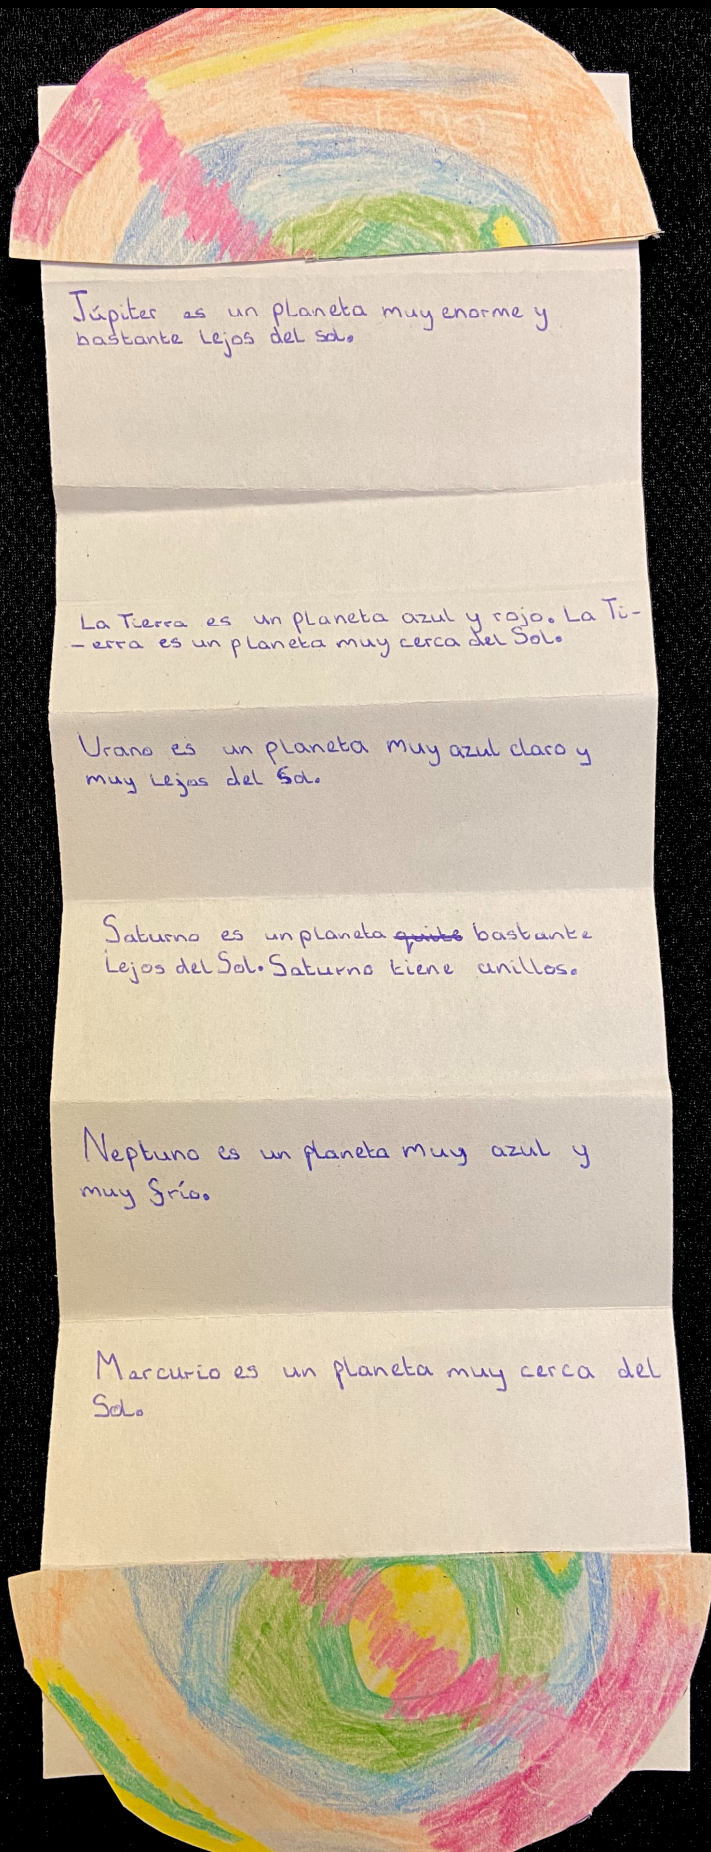 Júpiter es un planeta muy enorme y
bastante lejos del sol.
La Tierra es un planeta azul y rojo. La Ti-
- erra es un planeta muy cerca del Sol.
Urano es un planeta muy azul claro y
muy lejos del Sol.
Saturno es un planeta quite bastante
Lejos del Sol. Saturno tiene anillos.
Neptuno es un planeta muy azul y
muy frío.
Marcurio es un planeta muy cerca del
Sol.